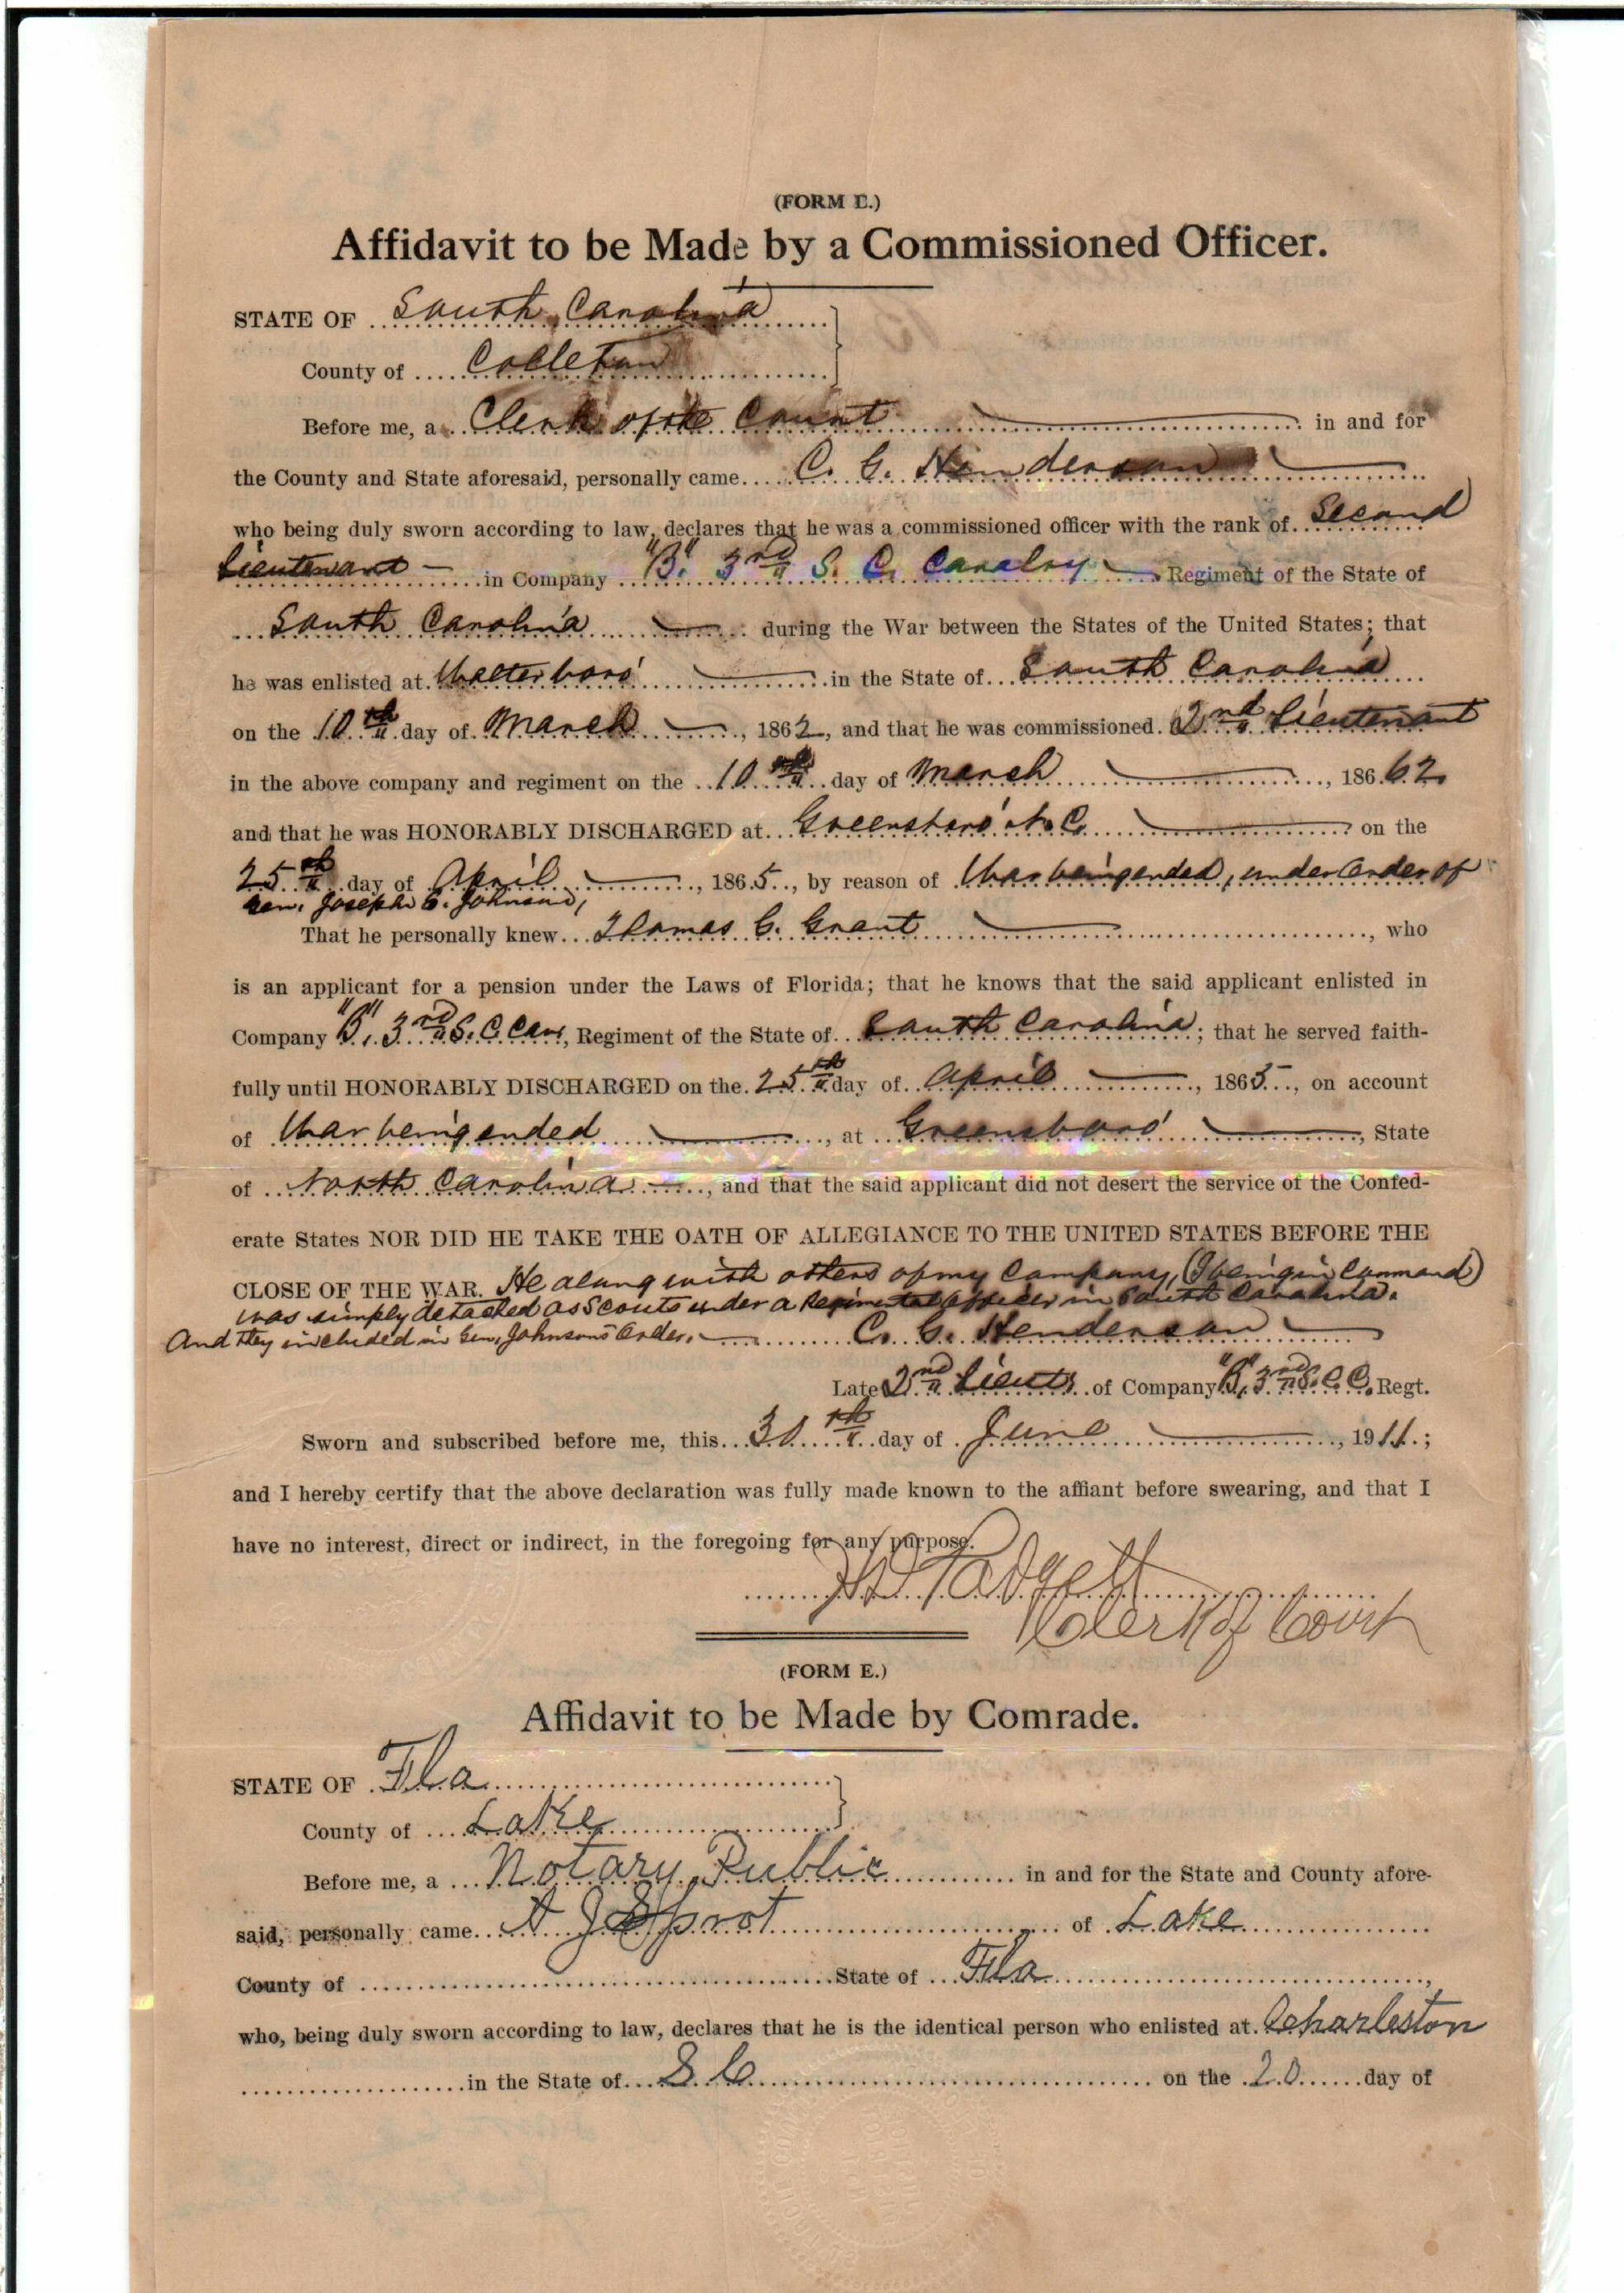 (FORM E.)
Affidavit to be Made by a Commissioned Officer.
STATE OF South Carolina
County of Colleton
Before me, a Clerk of the Court in and for
the County and State aforesaid, personally came C. G. Henderson
who being duly sworn according to law, declares that he was a commissioned officer with the rank of Second
Lieutenant in Company "B", 3rd S. C. Cavalry Regiment of the State of
South Carolina during the War between the States of the United States; that
he was enlisted at Walterboro' in the State of South Carolina
on the 10th day of March, 1862, and that he was commissioned 2nd Lieutenant
in the above company and regiment on the 10th day of March, 186 62
and that he was HONORABLY DISCHARGED at Greensboro' N. C. on the
25th day of April, 1865, by reason of War being ended, under order of
Gen. Joseph E. Johnson,
That he personally knew Thomas G. Grant, who
is an applicant for a pension under the Laws of Florida; that he knows that the said applicant enlisted in
Company "B", 3rd S. C. Cav, Regiment of the State of South Carolina; that he served faith-
fully until HONORABLY DISCHARGED on the 25th day of April, 1865, on account
of War being ended, at Greensboro', State
of North Carolina, and that the said applicant did not desert the service of the Confed-
erate States NOR DID HE TAKE THE OATH OF ALLEGIANCE TO THE UNITED STATES BEFORE THE
CLOSE OF THE WAR. He along with others of my Company, (I being in Command)
was simply detached as Scouts under a Regimental officer in South Carolina.
And they included in Gen. Johnson's Order. C. G. Henderson
Late 2nd Lieut. of Company "B", 3rd S. C. C. Regt.
Sworn and subscribed before me, this 30th day of June, 1911;
and I hereby certify that the above declaration was fully made known to the affiant before swearing, and that I
have no interest, direct or indirect, in the foregoing for any purpose.
Padgett
Clerk of Court
(FORM E.)
Affidavit to be Made by Comrade.
STATE OF Fla
County of Lake
Before me, a Notary Public in and for the State and County afore-
said, personally came A J of Lake
County of State of Fla,
who, being duly sworn according to law, declares that he is the identical person who enlisted at Charleston
in the State of S C on the 20 day of